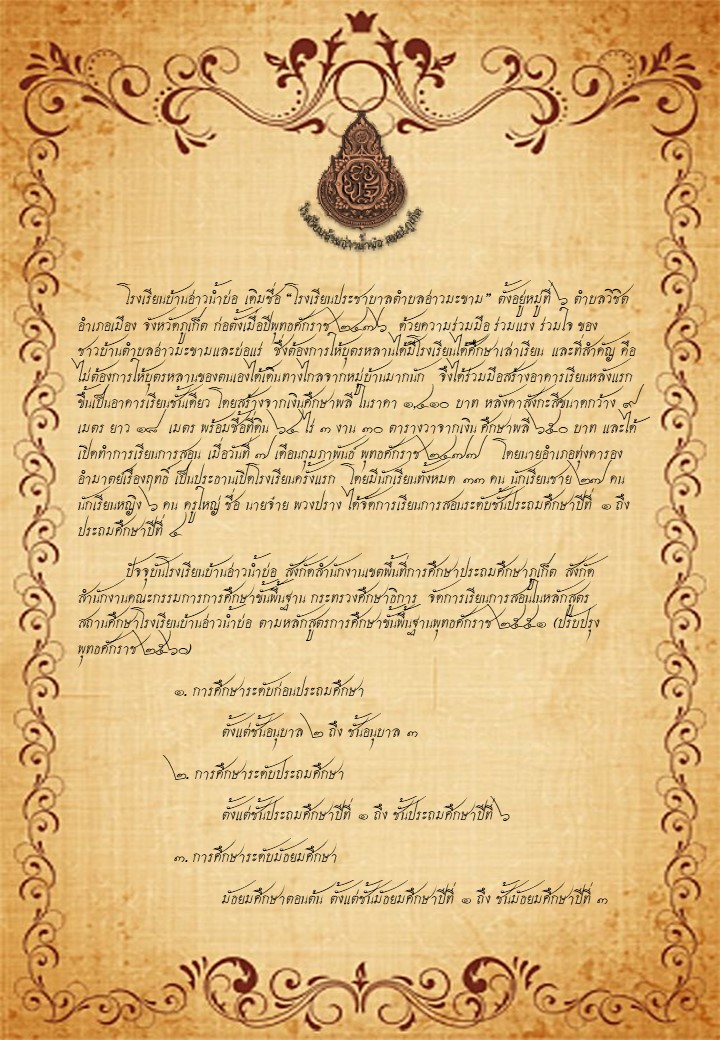 โรงเรียนบ้านอ่าวน้ำบ่อ สพป.ภูเก็ต
โรงเรียนบ้านอ่าวน้ำบ่อ เดิมชื่อ “โรงเรียนประชาบาลตำบลอ่าวมะขาม” ตั้งอยู่หมู่ที่ ๖ ตำบลวิชิต
อำเภอเมือง จังหวัดภูเก็ต ก่อตั้งเมื่อปีพุทธศักราช ๒๔๗๖ ด้วยความร่วมมือ ร่วมแรง ร่วมใจ ของ
ชาวบ้านตำบลอ่าวมะขามและบ่อแร่ ซึ่งต้องการให้บุตรหลานได้มีโรงเรียนได้ศึกษาเล่าเรียน และที่สำคัญ คือ
ไม่ต้องการให้บุตรหลานของตนเองได้เดินทางไกลจากหมู่บ้านมากนัก จึงได้ร่วมมือสร้างอาคารเรียนหลังแรก
ขึ้นเป็นอาคารเรียนชั้นเดียว โดยสร้างจากเงินศึกษาพลี ในราคา ๑,๔๑๐ บาท หลังคาสังกะสีขนาดกว้าง ๙
เมตร ยาว ๑๘ เมตร พร้อมซื้อที่ดิน ๖๔ ไร่ ๓ งาน ๓๐ ตารางวาจากเงิน ศึกษาพลี ๖๕๐ บาท และได้
เปิดทำการเรียนการสอน เมื่อวันที่ ๗ เดือนกุมภาพันธ์ พุทธศักราช ๒๔๗๗ โดยนายอำเภอทุ่งคารอง
อำมาตย์เรืองฤทธิ์ เป็นประธานเปิดโรงเรียนครั้งแรก โดยมีนักเรียนทั้งหมด ๓๓ คน นักเรียนชาย ๒๗ คน
นักเรียนหญิง ๖ คน ครูใหญ่ ชื่อ นายจ่าย พวงปราง ได้จัดการเรียนการสอนระดับชั้นประถมศึกษาปีที่ ๑ ถึง
ประถมศึกษาปีที่ ๔
ปัจจุบันโรงเรียนบ้านอ่าวน้ำบ่อ สังกัดสำนักงานเขตพื้นที่การศึกษาประถมศึกษาภูเก็ต สังกัด
สำนักงานคณะกรรมการการศึกษาขั้นพื้นฐาน กระทรวงศึกษาธิการ จัดการเรียนการสอนในหลักสูตร
สถานศึกษาโรงเรียนบ้านอ่าวน้ำบ่อ ตามหลักสูตรการศึกษาขั้นพื้นฐานพุทธศักราช ๒๕๕๑ (ปรับปรุง
พุทธศักราช ๒๕๖๐)
๑. การศึกษาระดับก่อนประถมศึกษา
ตั้งแต่ชั้นอนุบาล ๒ ถึง ชั้นอนุบาล ๓
๒. การศึกษาระดับประถมศึกษา
ตั้งแต่ชั้นประถมศึกษาปีที่ ๑ ถึง ชั้นประถมศึกษาปีที่ ๖
๓. การศึกษาระดับมัธยมศึกษา
มัธยมศึกษาตอนต้น ตั้งแต่ชั้นมัธยมศึกษาปีที่ ๑ ถึง ชั้นมัธยมศึกษาปีที่ ๓